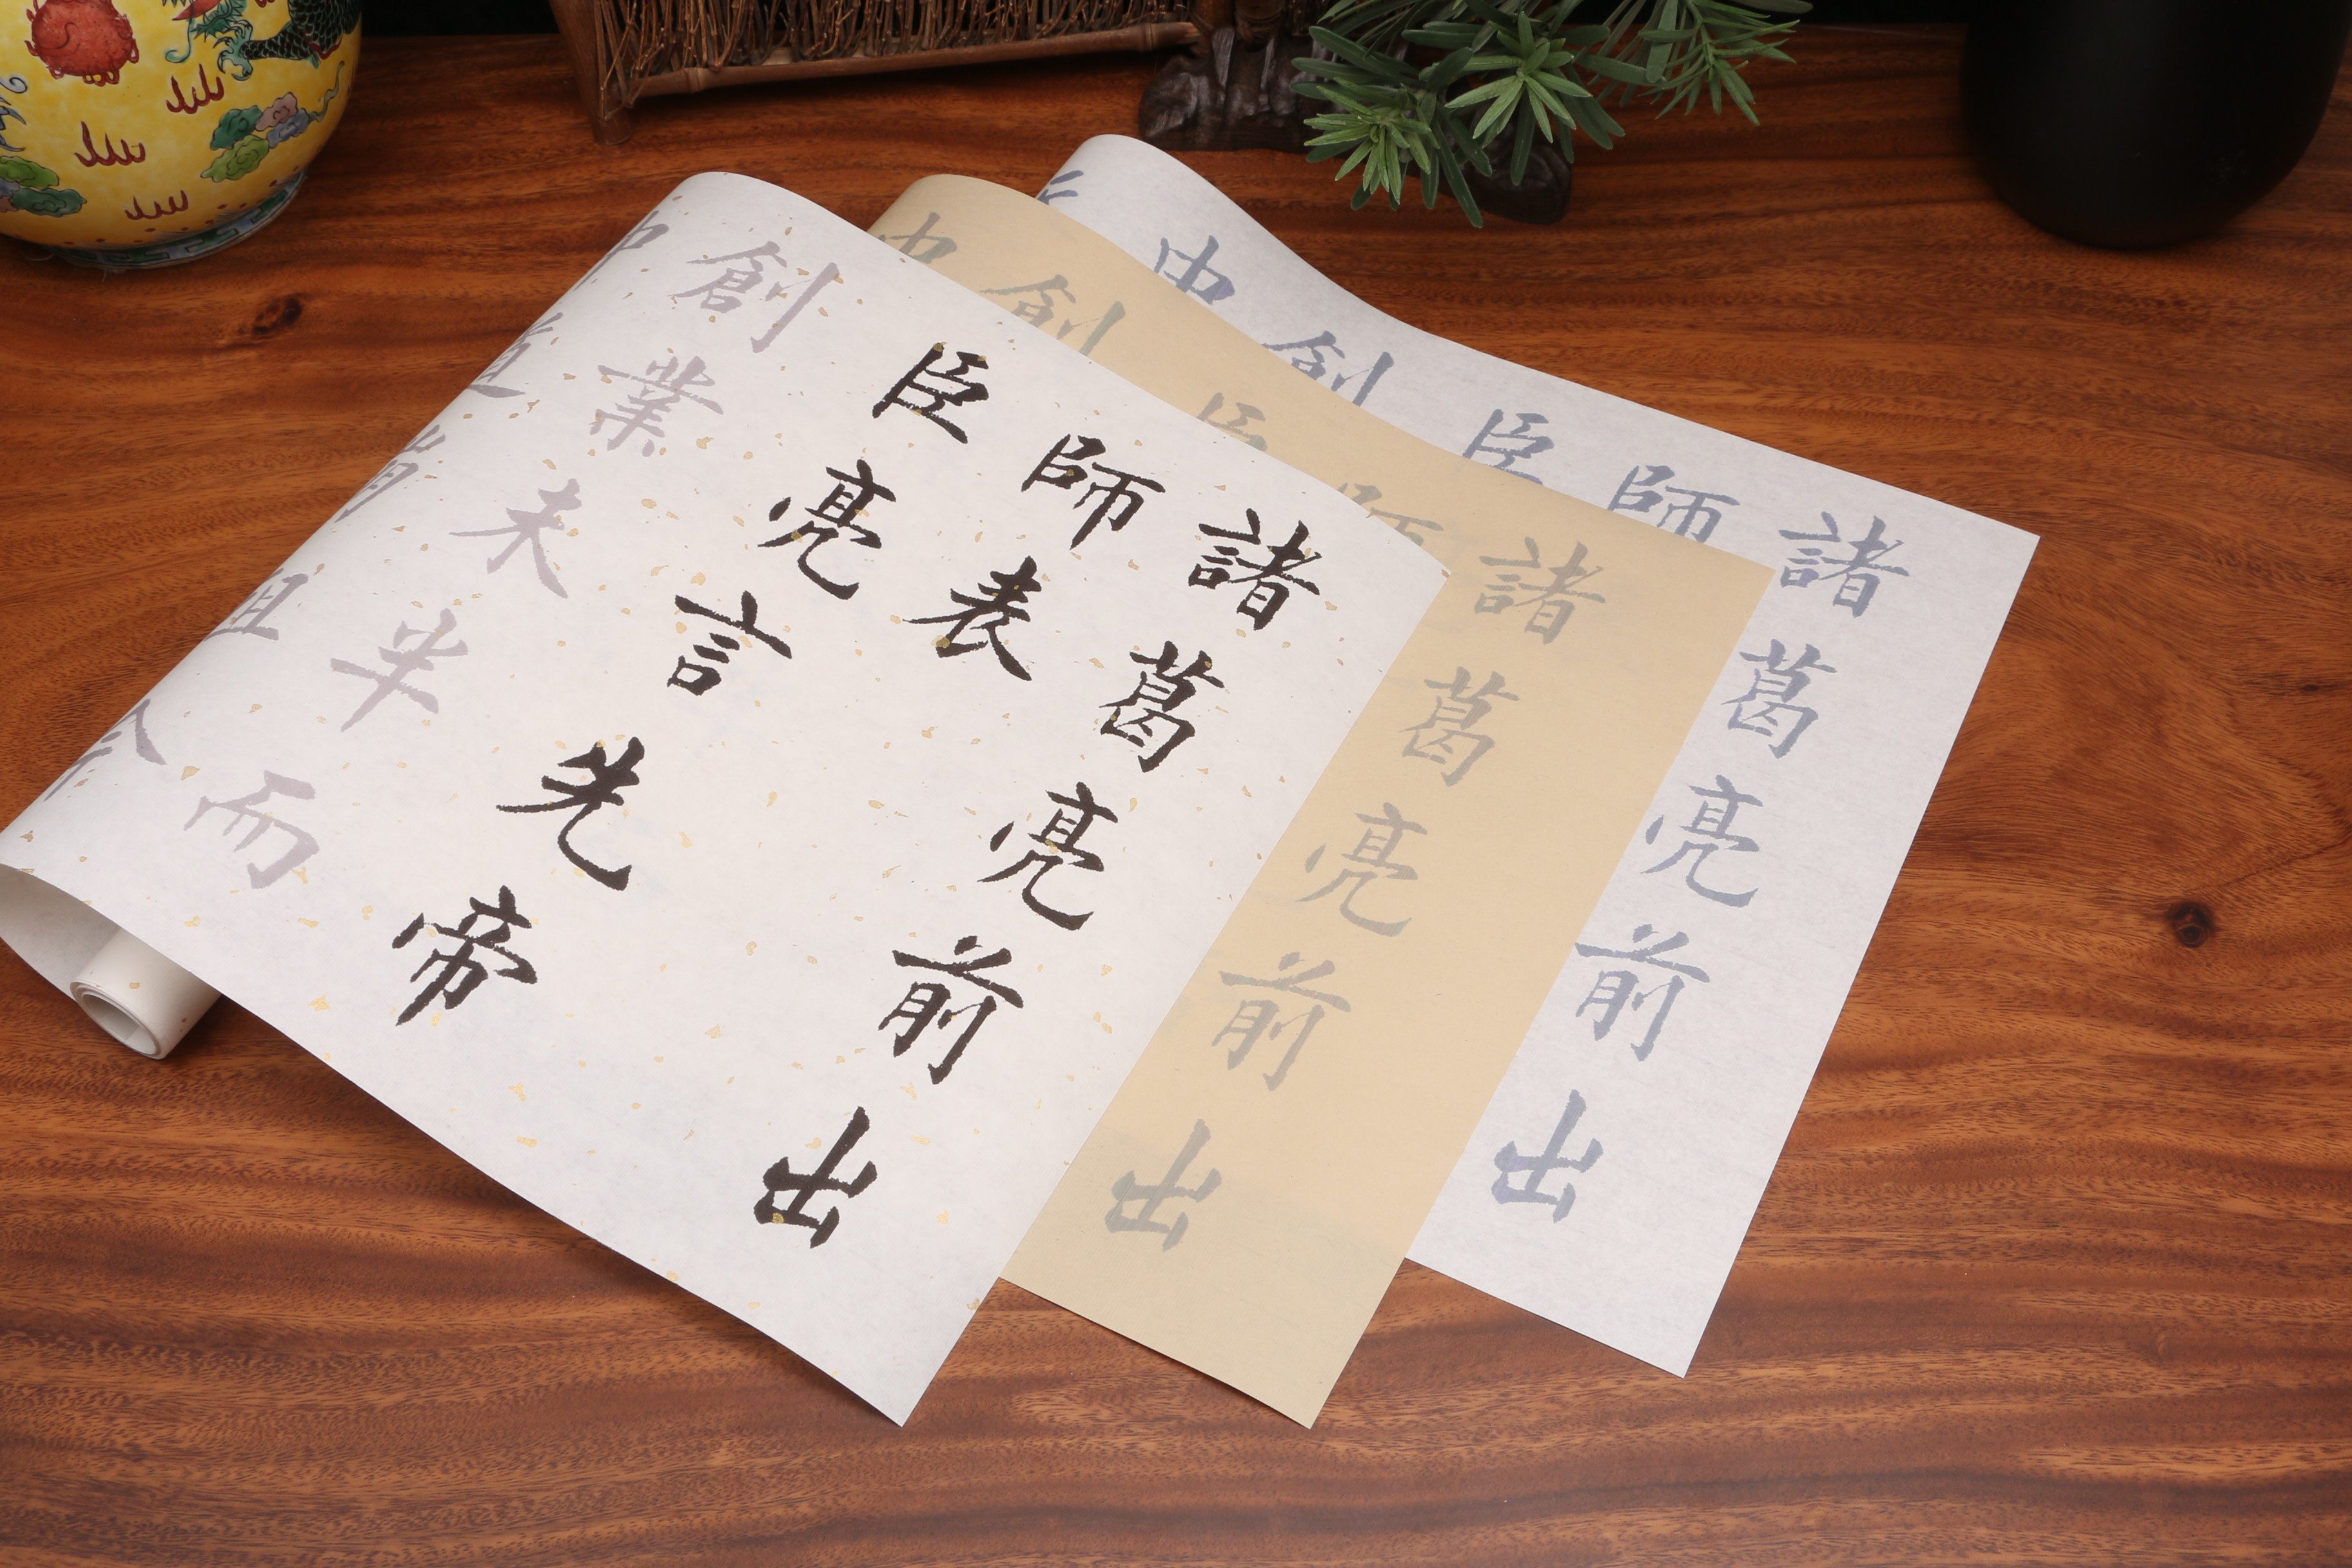 諸葛亮前出
師表
臣亮言先帝
創業未半而
中道崩殂今
諸葛亮前出
師
臣
創
中
諸葛亮前出
師
臣
創
中